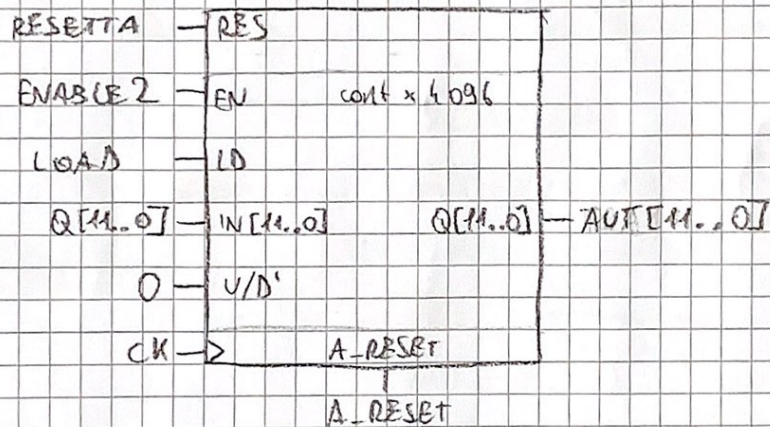 RESETTA RES
ENABLE2 EN cont x 4096
LOAD LD
Q[11..0] IN[11..0] Q[11..0] AUT[11..0]
0 U/D'
CK A_RESET
A_RESET